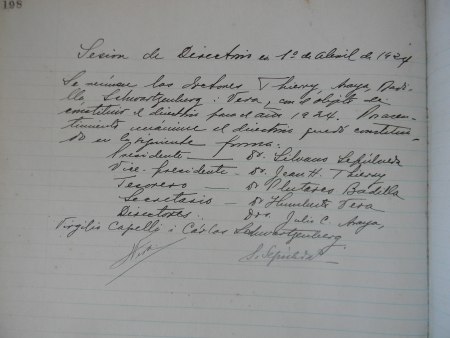 198
Sesion de Directorio en 1º de Abril de 1924
Se reúnen los doctores Thierry, Araya, Badi-
lla Schwartzenberg i Vera, con el objeto de
constituir el directorio para el año 1924. Por asen-
timiento unánime el directorio quedó constitui-
do en la siguiente forma:
Presidente — Dr. Silvano Sepúlveda
Vice-presidente — Dr. Jean H. Thierry
Tesorero — Dr Plutarco Badilla
Secretario — Dr Humberto Vera
Directores: drs. Julio C. Araya,
Virgilio Capelli i Carlos Schwartzenberg
S. Sepúlveda